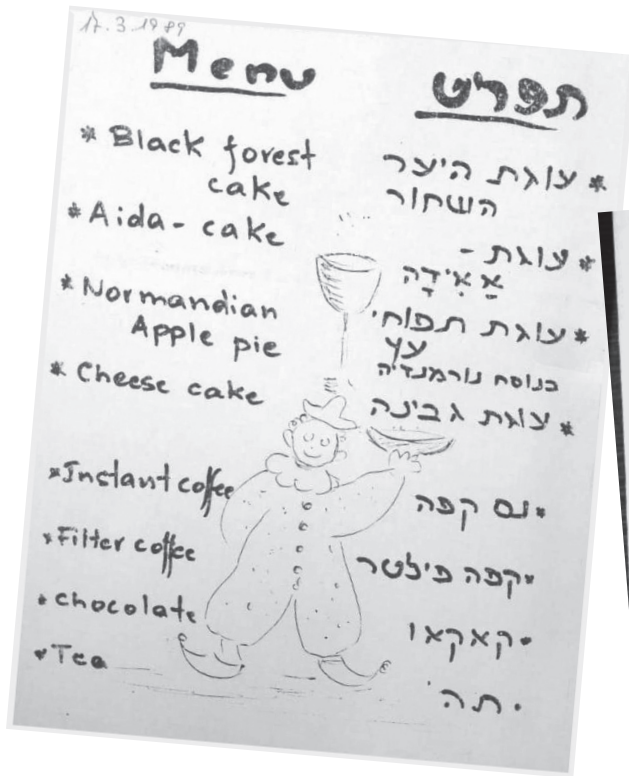 17.3.1989
Menu
* Black forest
cake
* Aida - cake
* Normandian
Apple pie
* Cheese cake
* Instant coffee
* Filter coffee
* chocolate
* Tea
תפריט
* עוגת היער
השחור
* עוגת -
אַאִידָה
* עוגת תפוחי
עץ
בנוסח נורמנדיה
* עוגת גבינה
* נס קפה
* קפה פילטר
* קאקאו
. תה